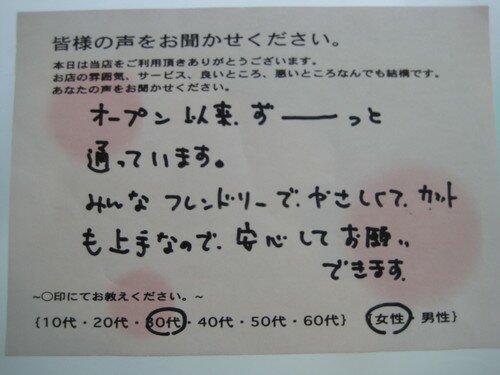 皆様の声をお聞かせください。
本日は当店をご利用頂きありがとうございます。
お店の雰囲気、サービス、良いところ、悪いところなんでも結構です。
あなたの声をお聞かせください。
オープン以来、ずーーっと
通っています。
みんな フレンドリーで、やさしくて、カット
も上手なので、安心してお願い
できます。
~○印にてお教えください。~
{10代・20代・30代・40代・50代・60代} {女性・男性}